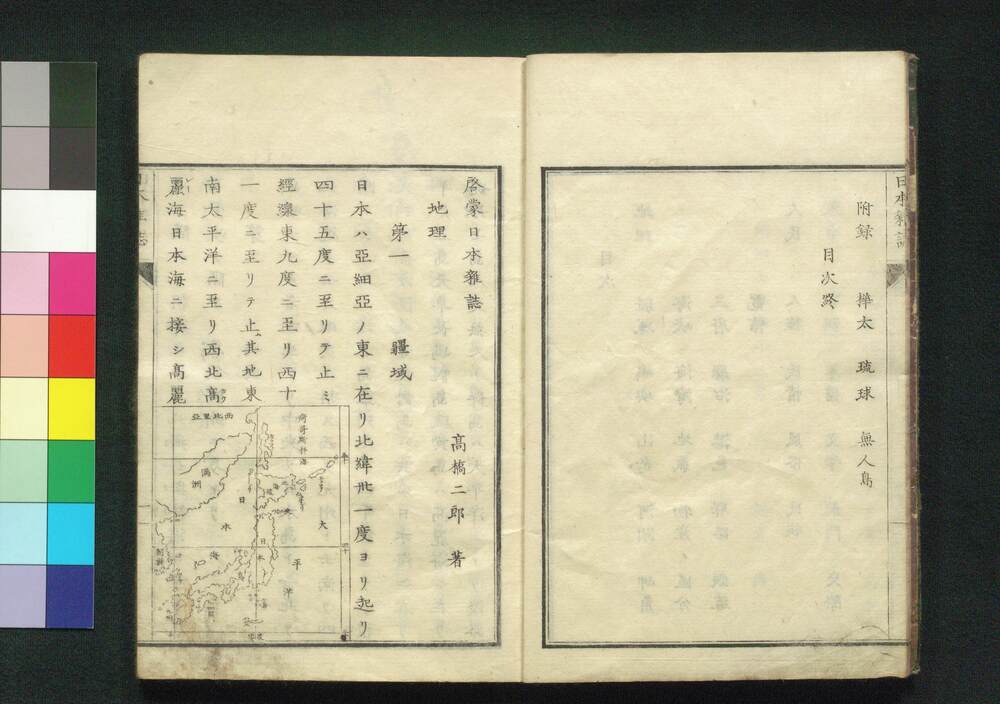 日本雜誌
附録　樺太　琉球　無人島
目次終
啓蒙日本雜誌
高橋二郎　著
地理
第一　疆域
日本ハ亞細亞ノ東ニ在リ北緯卅一度ヨリ起リ
四十五度ニ至リテ止ミ
經線東九度ニ至リ西十
一度ニ至リテ止ム其地東
南太平洋ニ至リ西北高
麗海日本海ニ接シ高麗
西比里亞
満洲
日本海
大平洋
日本
朝鮮